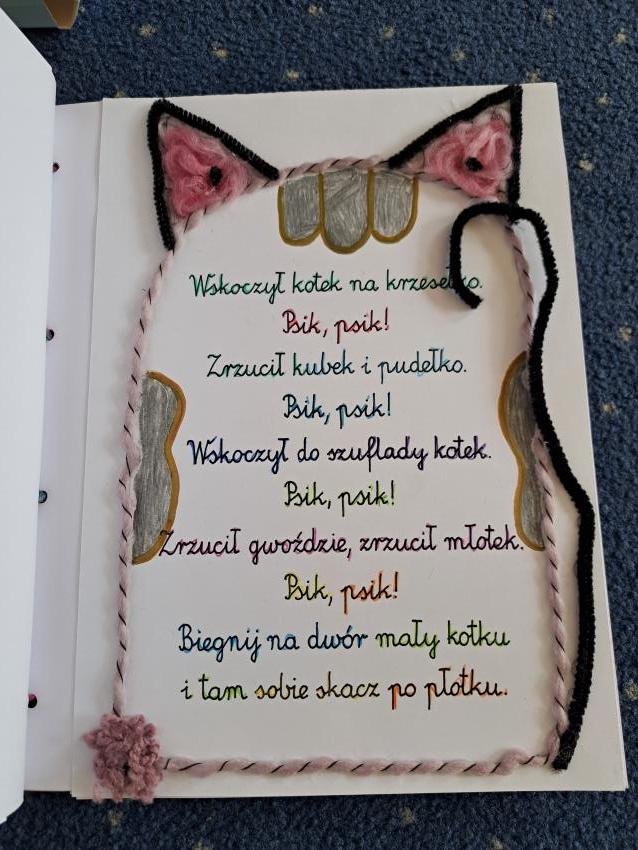 Wskoczył kotek na krzesełko.
Psik, psik!
Zrzucił kubek i pudełko.
Psik, psik!
Wskoczył do szuflady kotek.
Psik, psik!
Zrzucił gwoździe, zrzucił młotek.
Psik, psik!
Biegnij na dwór mały kotku
i tam sobie skacz po płotku.